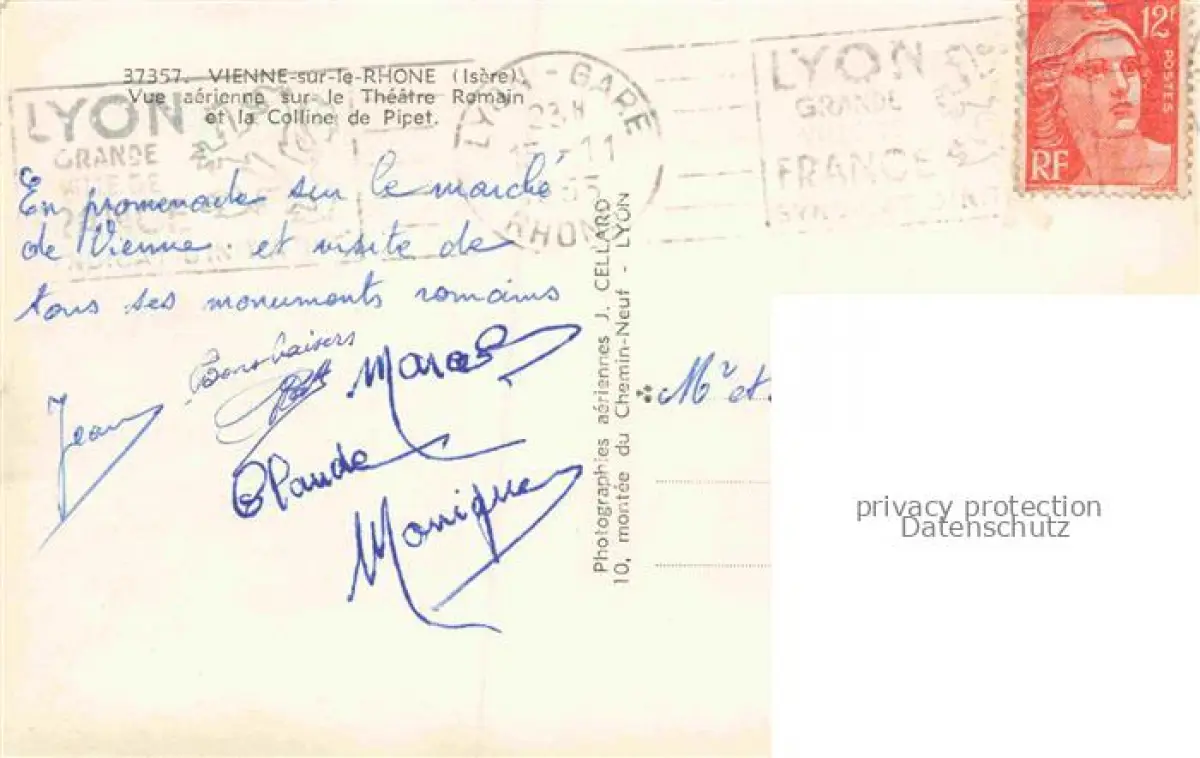 37357. VIENNE-sur-le-RHONE (Isère).
Vue aérienne sur le Théâtre Romain
et la Colline de Pipet.
LYON
GRANDE
LYON-GARE
23H
11
RHONE
LYON
GRANDE
FRANCE
12F
POSTES
RF
En promenade sur le marché
de Vienne. et visite de
tous ses monuments romains
Bons baisers
Jean
Claude
Monique
Photographies aériennes J. CELLARD
10, montée du Chemin-Neuf - LYON
Mr et
privacy protection
Datenschutz